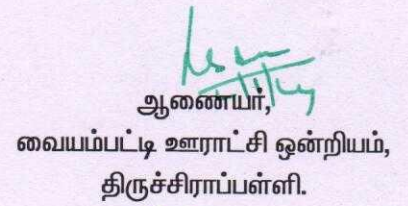 ஆணையர்,
வையம்பட்டி ஊராட்சி ஒன்றியம்,
திருச்சிராப்பள்ளி.